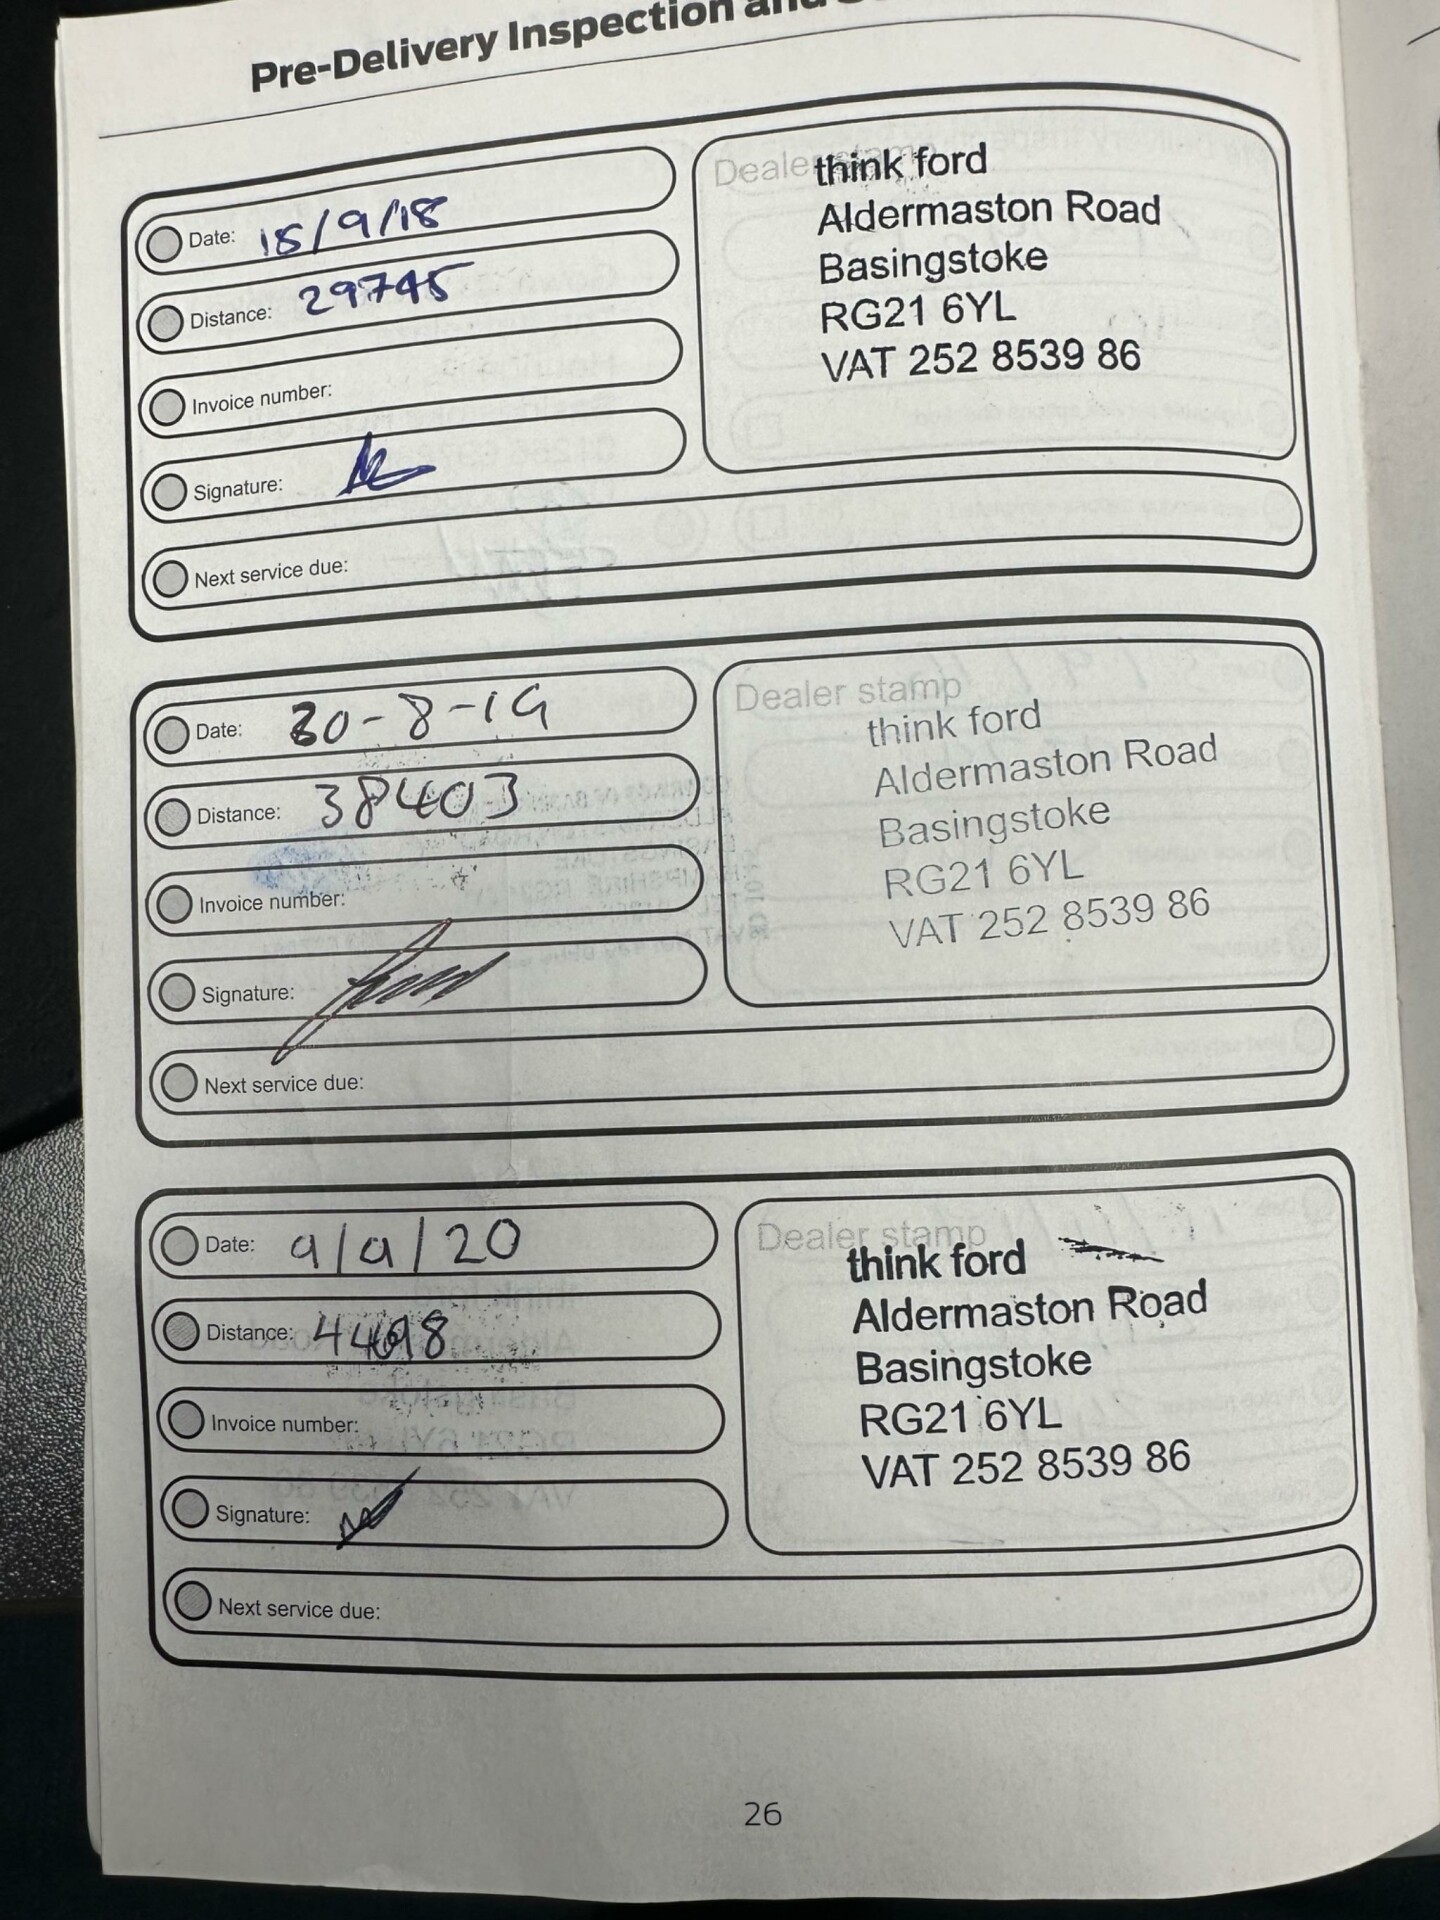 Pre-Delivery Inspection and
Date: 18/9/18
Distance: 29745
Invoice number:
Signature:
Next service due:
Dealer stamp
think ford
Aldermaston Road
Basingstoke
RG21 6YL
VAT 252 8539 86
Date: 30-8-19
Distance: 38403
Invoice number:
Signature:
Next service due:
Dealer stamp
think ford
Aldermaston Road
Basingstoke
RG21 6YL
VAT 252 8539 86
Date: 9/9/20
Distance:
Invoice number:
Signature:
Next service due:
Dealer stamp
think ford
Aldermaston Road
Basingstoke
RG21 6YL
VAT 252 8539 86
26